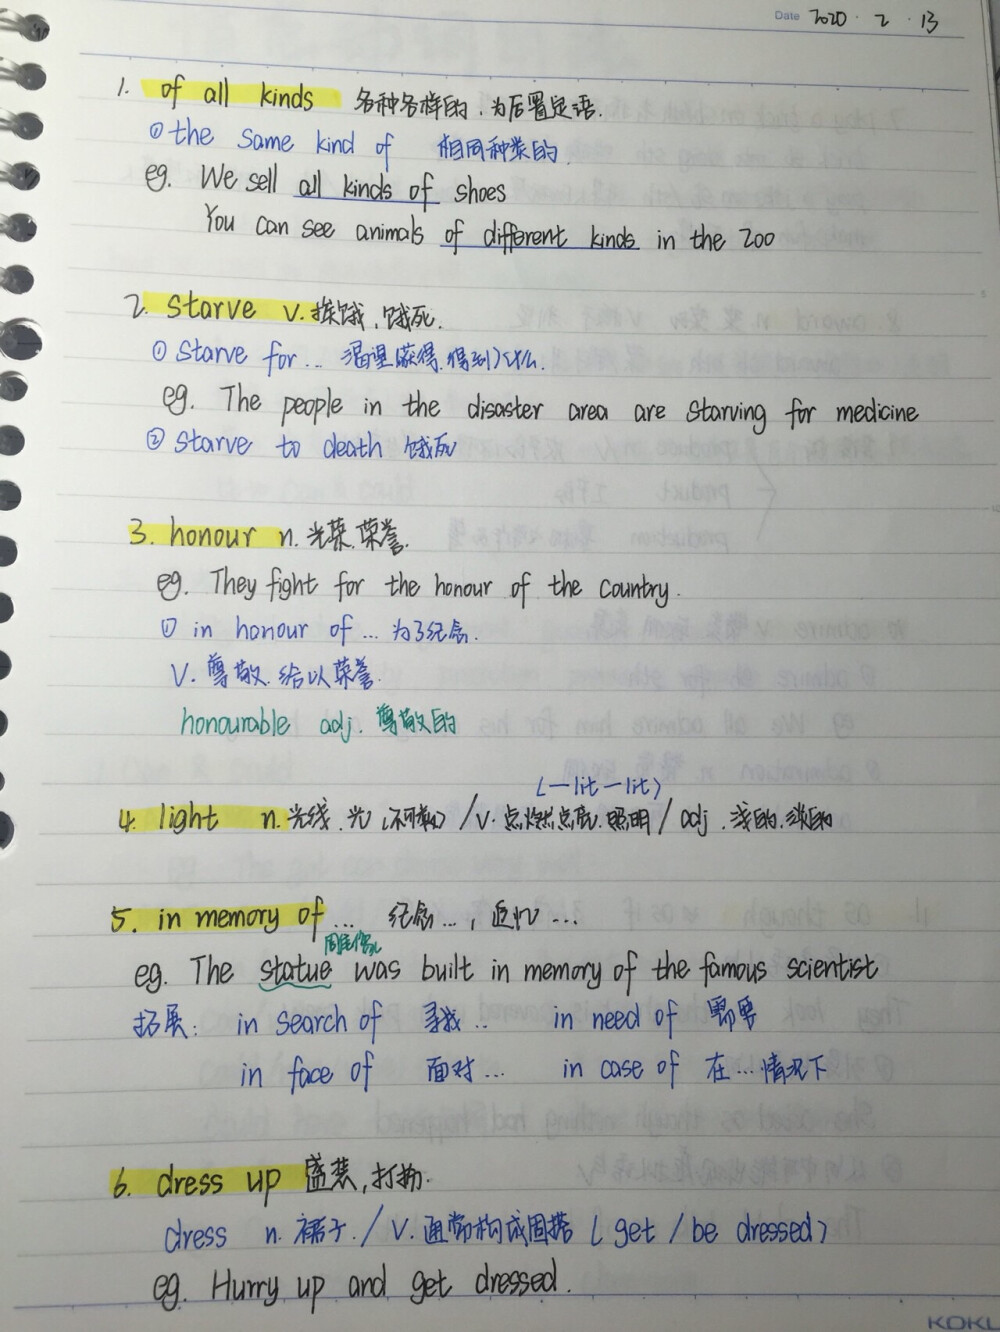 Date 2020 · 2 · 13
1. of all kinds 各种各样的.为后置定语.
①the same kind of 相同种类的
eg. We sell all kinds of shoes
You can see animals of different kinds in the zoo
2. starve v.挨饿.饿死.
① starve for... 渴望获得.得到什么.
eg. The people in the disaster area are starving for medicine
② starve to death 饿死
3. honour n. 光荣.荣誉.
eg. They fight for the honour of the country.
① in honour of ... 为了纪念.
v. 尊敬.给以荣誉.
honourable adj. 尊敬的
(—lit—lit)
4. light n.光线.光(不可数)/v.点燃点亮.照明/adj.浅的.淡的
5. in memory of... 纪念...,追忆...
周总像
eg. The statue was built in memory of the famous scientist
拓展: in search of 寻找.. in need of 需要
in face of 面对... in case of 在...情况下
6. dress up 盛装,打扮.
dress n. 裙子./v.通常构成固搭 (get/be dressed)
eg. Hurry up and get dressed.
KOKU